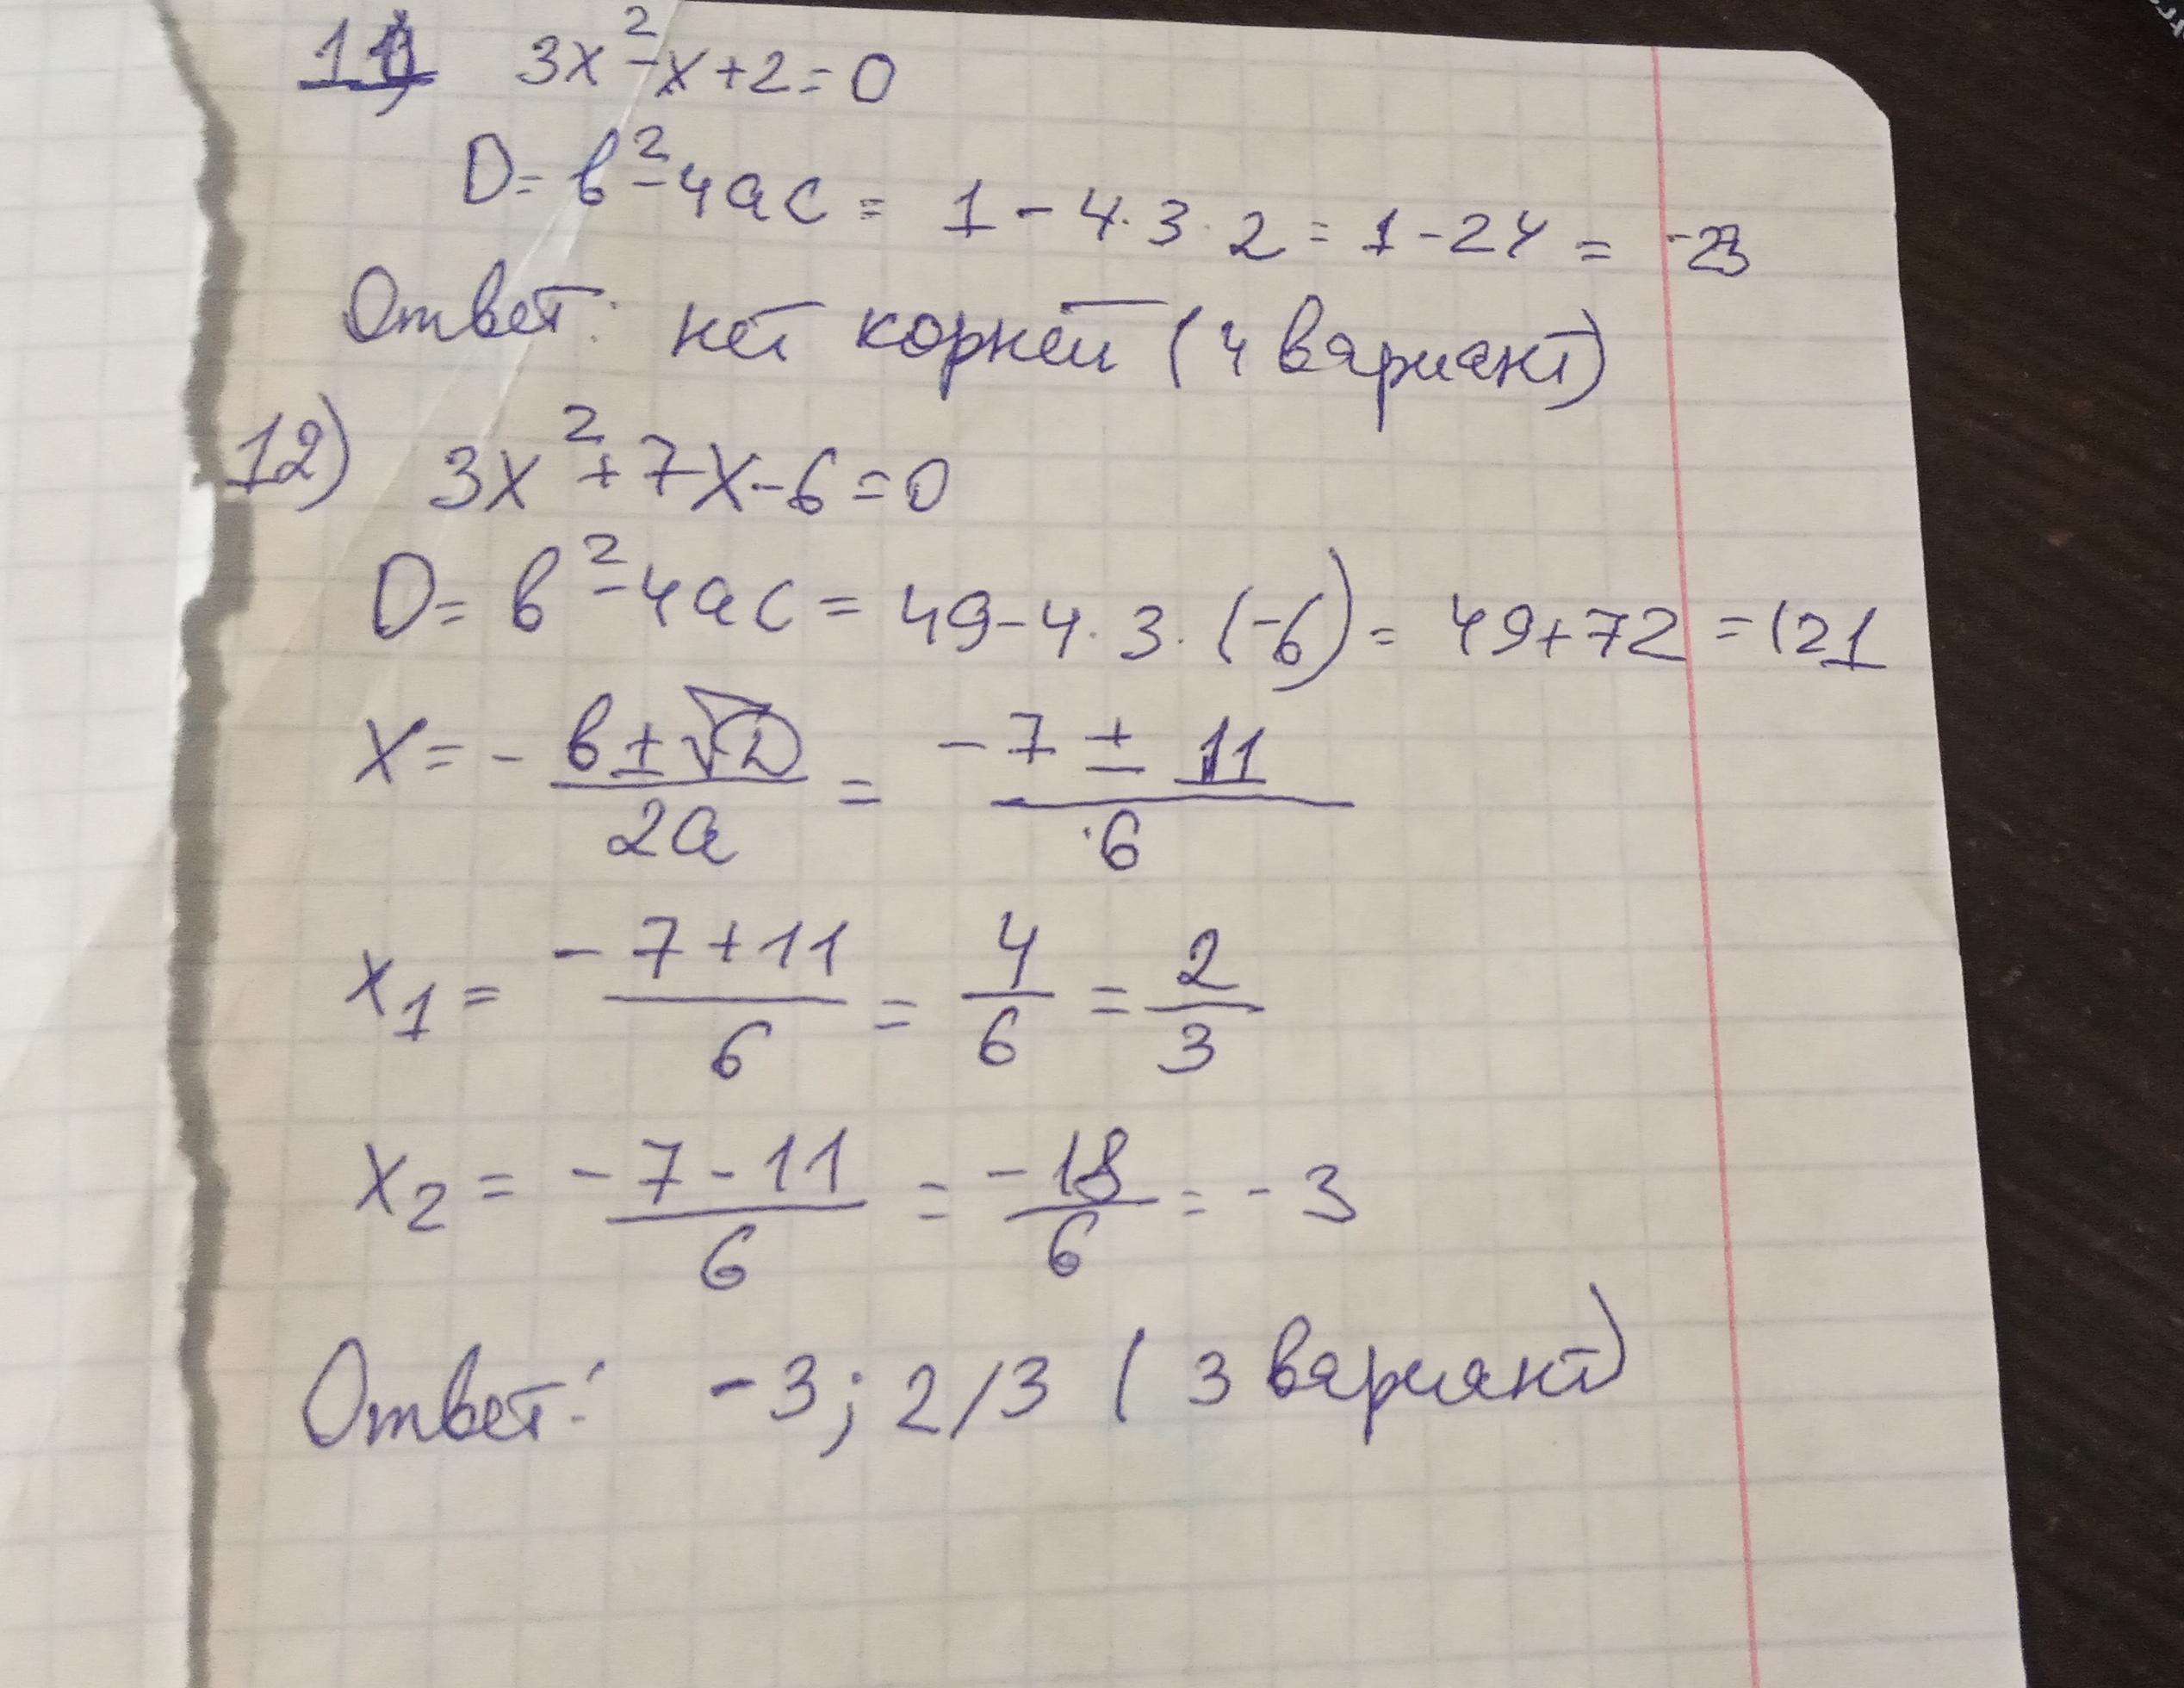 11) 3x²-x+2=0
D= b²-4ac = 1-4·3·2=1-24= -23
Ответ: нет корней (4 вариант)
12) 3x²+7x-6=0
D= b²-4ac=49-4·3·(-6)=49+72=121
x= - b±√D / 2a = -7±11 / 6
x₁= -7+11 / 6 = 4/6 = 2/3
x₂= -7-11 / 6 = -18/6 = -3
Ответ: -3; 2/3 (3 вариант)